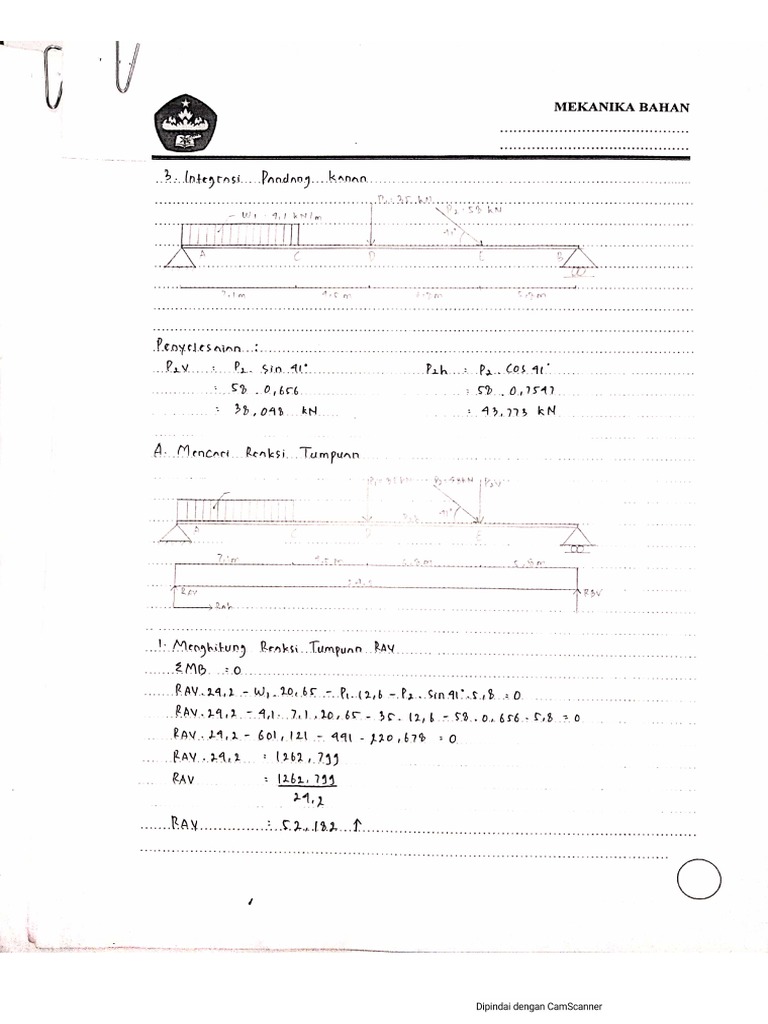 MEKANIKA BAHAN
3. Integrasi Pandang Kanan
P1 = 35 kN
P2 = 58 kN
W1 = 4,1 kN/m
41°
A C D E B
7,1 m 4,5 m 6,8 m 5,8 m
Penyelesaian :
P2V : P2 . Sin 41° P2h : P2 . Cos 41°
: 58 . 0,656 : 58 . 0,7547
: 38,048 kN : 43,773 kN
A. Mencari Reaksi Tumpuan
P2V
41°
A C D E
7,1 m 4,5 m 6,8 m 5,8 m
RAV RBV
RAh
1. Menghitung Reaksi Tumpuan RAV
ΣMB = 0
RAV . 24,2 - W1 . 20,65 - P1 . 12,6 - P2 . Sin 41° . 5,8 = 0
RAV . 24,2 - 4,1 . 7,1 . 20,65 - 35 . 12,6 - 58 . 0,656 . 5,8 = 0
RAV . 24,2 - 601,121 - 441 - 220,678 = 0
RAV . 24,2 : 1262,799
RAV : 1262,799
24,2
RAV : 52,182 ↑
Dipindai dengan CamScanner